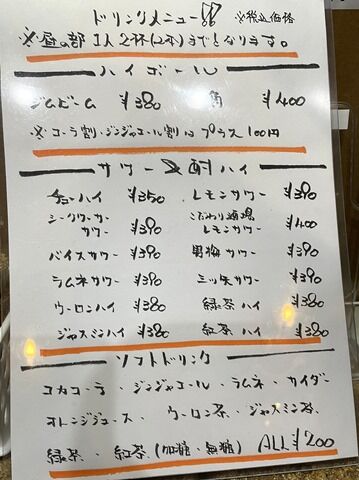 ドリンクメニュー!! ※税込価格
※昼の部 1人2杯(2本)までとなります。
ハイボール
ジムビーム ¥380 角 ¥400
※コーラ割・ジンジャエール割は プラス100円
サワー 酎ハイ
チューハイ ¥350 レモンサワー ¥390
シークワーサーサワー ¥390 こだわり酒場レモンサワー ¥400
バイスサワー ¥390 男梅サワー ¥390
ラムネサワー ¥390 三ッ矢サワー ¥390
ウーロンハイ ¥380 緑茶ハイ ¥380
ジャスミンハイ ¥380 紅茶ハイ ¥380
ソフトドリンク
コカコーラ・ジンジャエール・ラムネ・サイダー
オレンジジュース・ウーロン茶・ジャスミン茶
緑茶・紅茶(加糖・無糖) ALL ¥200